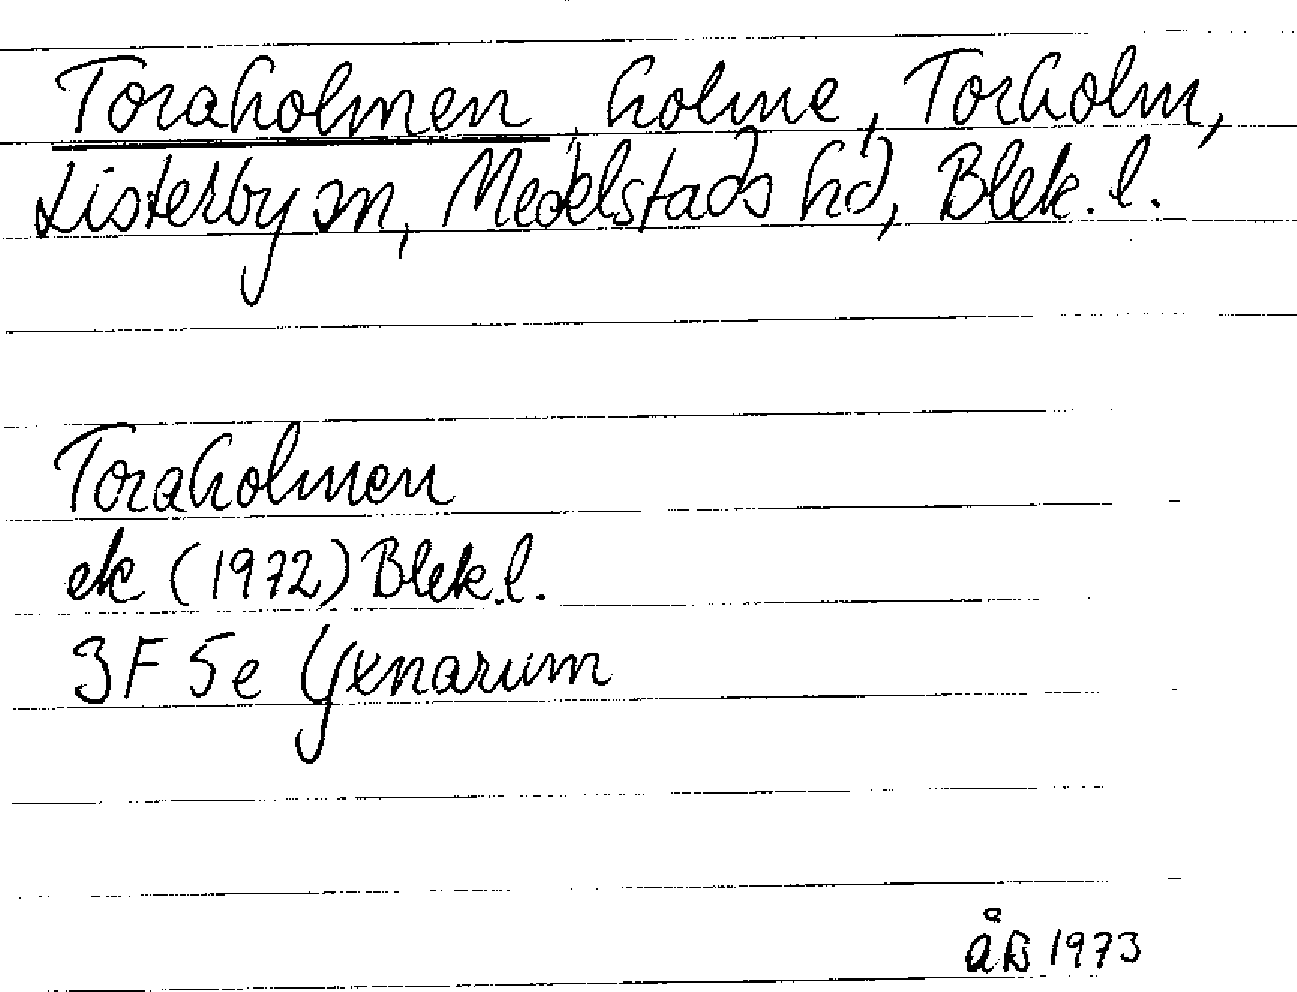 Toraholmen, holme, Torholm,
Listerby sn, Medelstads hd, Blek. l.
Toraholmen
ek (1972) Blek.l.
3F 5e Yxnarum
1973